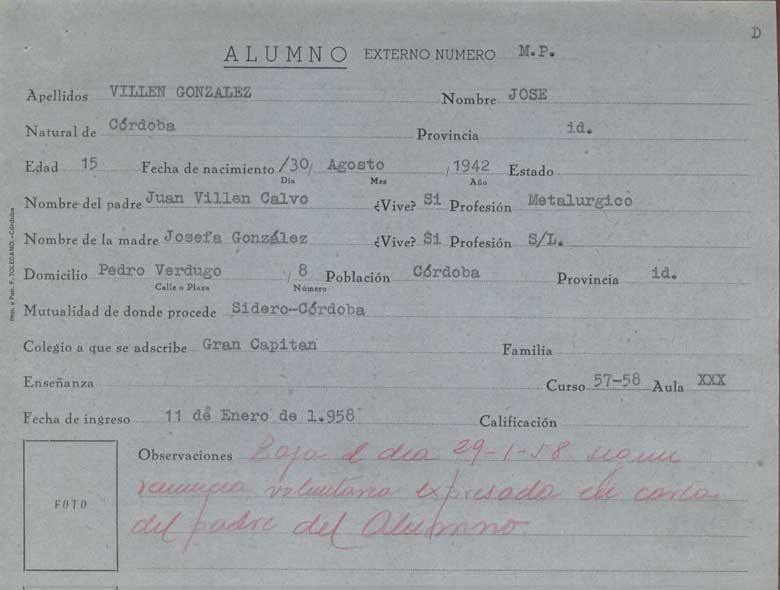 D
ALUMNO EXTERNO NUMERO M.P.
Apellidos VILLEN GONZALEZ Nombre JOSE
Natural de Córdoba Provincia id.
Edad 15 Fecha de nacimiento /30/ Agosto /1942 Estado
Día Mes Año
Nombre del padre Juan Villen Calvo ¿Vive? Si Profesión Metalurgico
Nombre de la madre Josefa González ¿Vive? Si Profesión S/L.
Domicilio Pedro Verdugo /8 Población Córdoba Provincia id.
Calle o Plaza Número
Mutualidad de donde procede Sidero-Córdoba
Colegio a que se adscribe Gran Capitan Familia
Enseñanza Curso 57-58 Aula XXX
Fecha de ingreso 11 de Enero de 1.958 Calificación
Observaciones Baja el dia 29-1-58 segun
renuncia voluntaria expresada en carta
del padre del Alumno.
FOTO
Imp. y Pap. F. TOLEDANO.-Córdoba